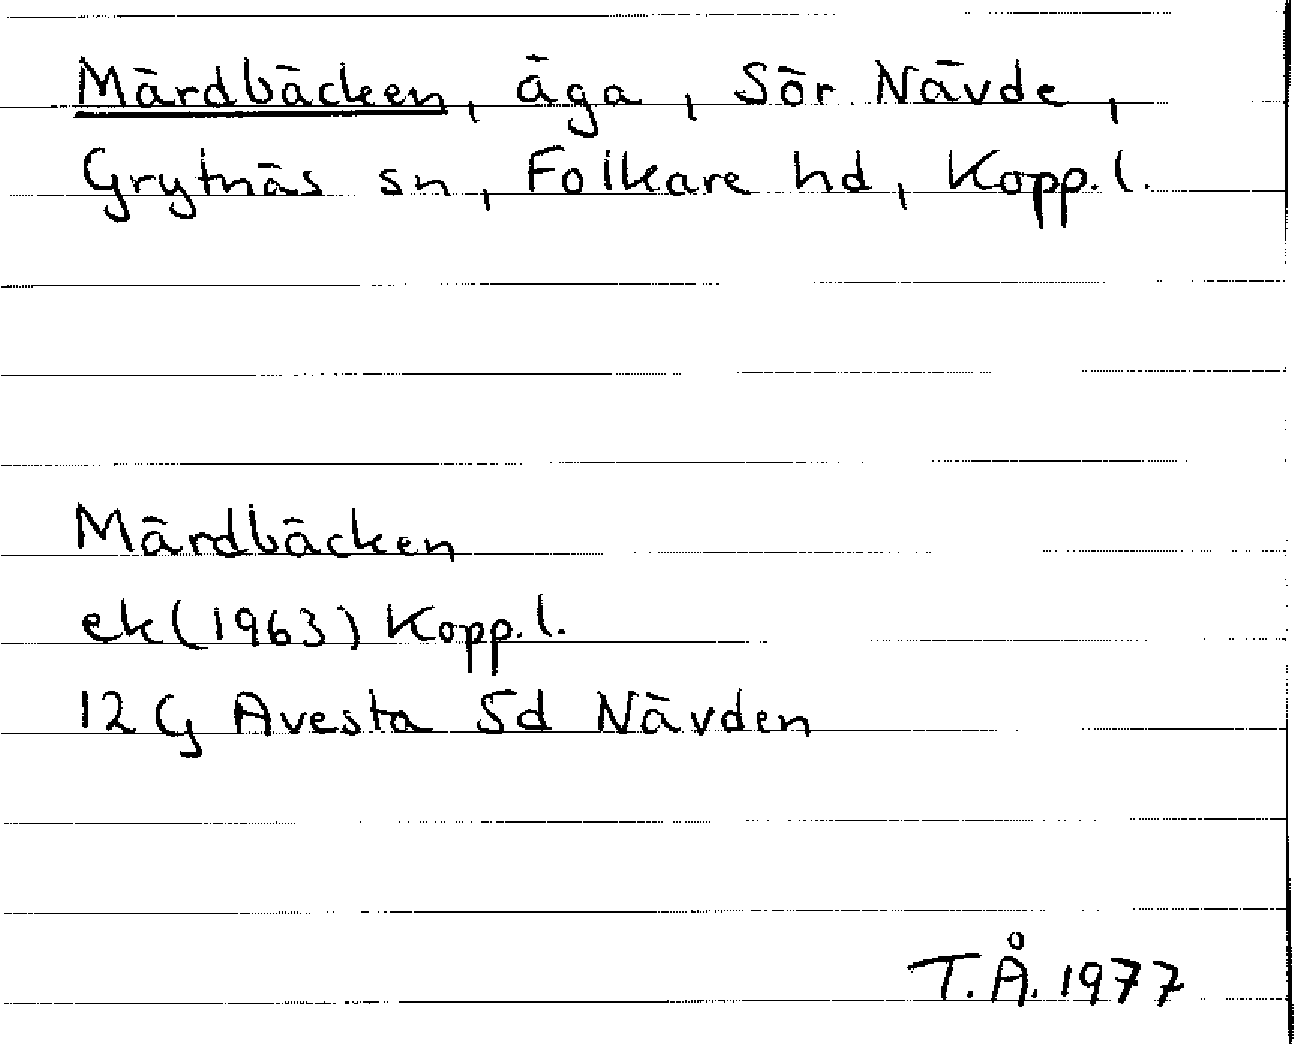 Märdbäcken, äga, Sör Nävde,
Grytnäs sn, Folkare hd, Kopp.l.
Märdbäcken
ek(1963) Kopp.l.
12G Avesta 5d Nävden
T.Å.1977